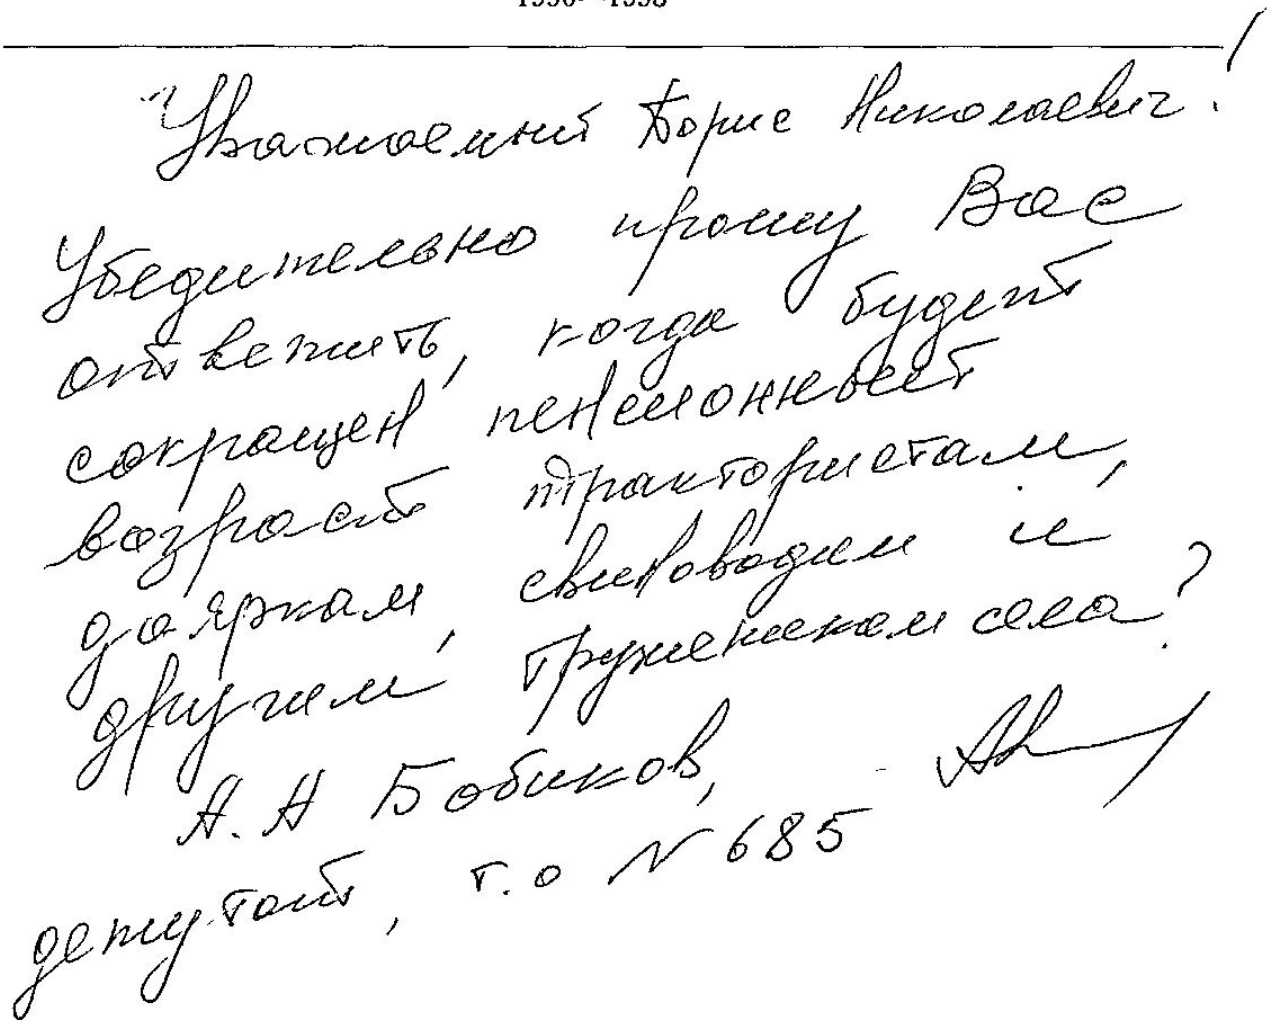 Уважаемый Борис Николаевич!
Убедительно прошу Вас
ответить, когда будет
сокращен пенсионный
возраст трактористам,
дояркам, свиноводам и
другим труженикам села?
А.А Бобиков,
депутат, т.о N 685